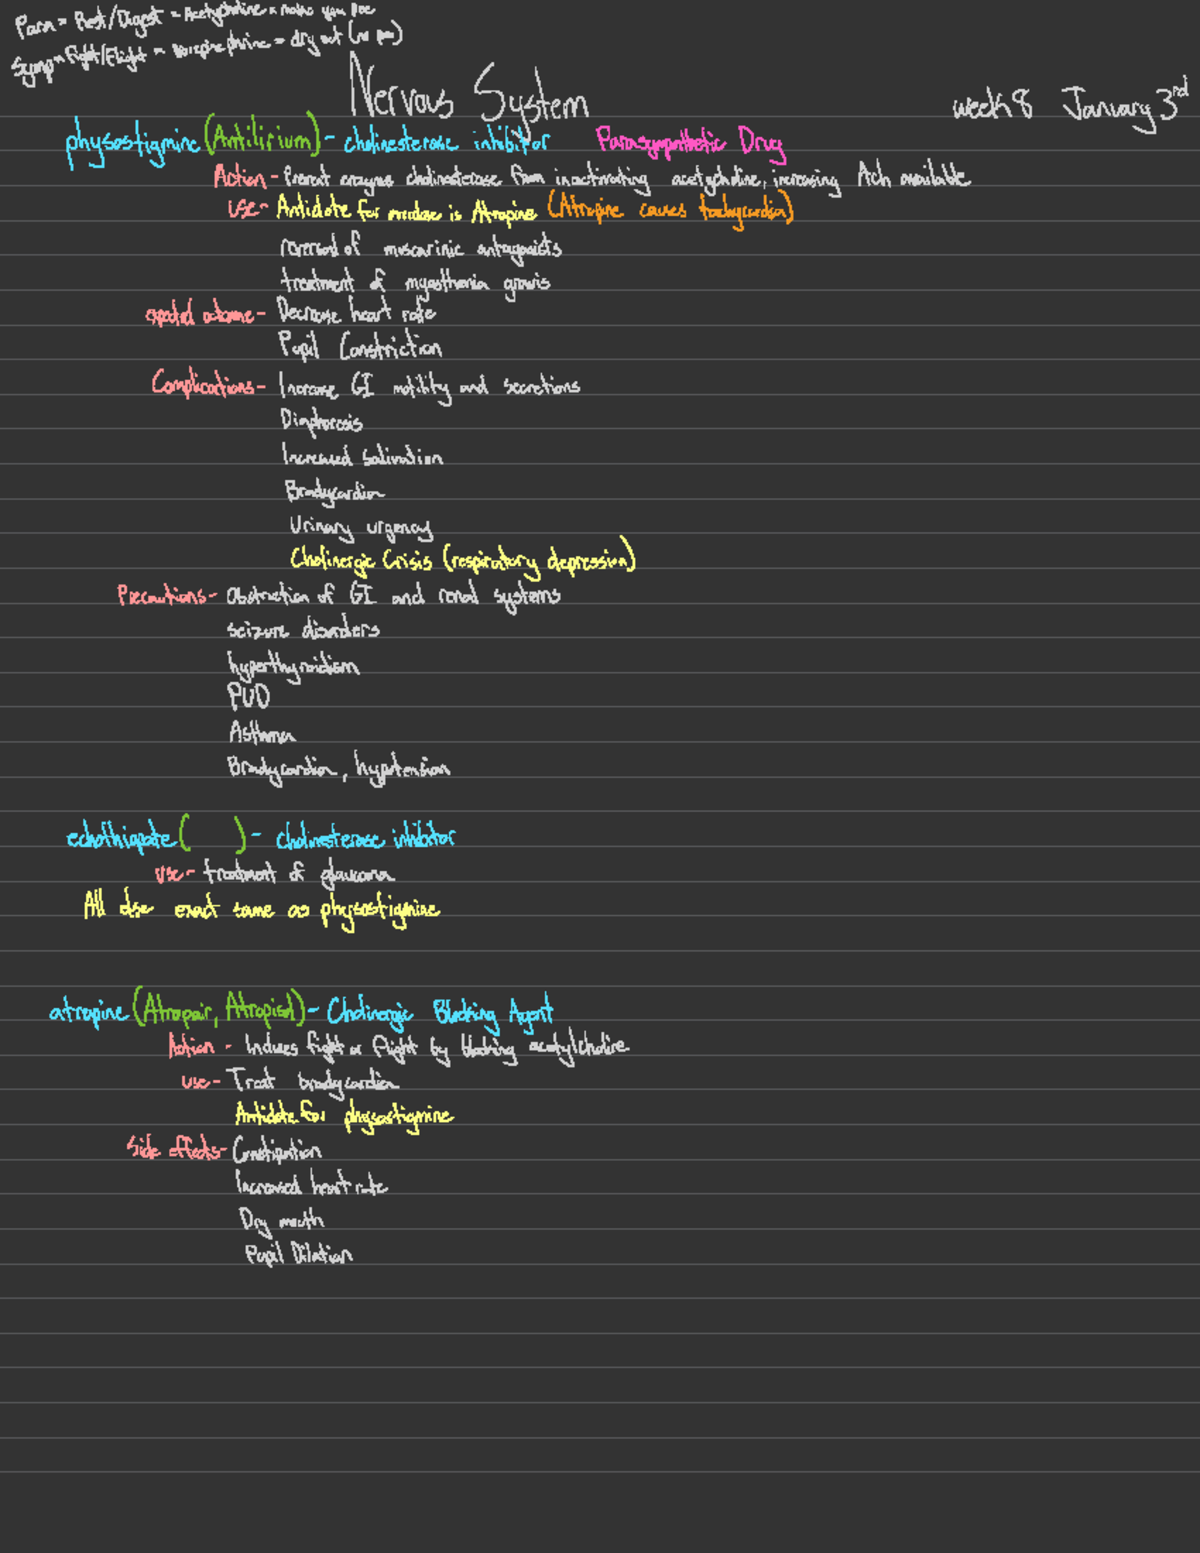 Para = Rest/Digest = Acetylcholine = makes you pee
Symp = Fight/Flight = Norepinephrine = dry out (no pee)
Nervous System
week 8 January 3rd
physostigmine (Antilirium) - cholinesterase inhibitor Parasympathetic Drug
Action - Prevent enzyme cholinesterase from inactivating acetylcholine, increasing Ach available
Use - Antidote for overdose is Atropine (Atropine causes tachycardia)
reversal of muscarinic antagonists
treatment of myasthenia gravis
expected outcome - Decrease heart rate
Pupil Constriction
Complications - Increase GI motility and secretions
Diaphoresis
Increased Salivation
Bradycardia
Urinary urgency
Cholinergic Crisis (respiratory depression)
Precautions - Obstruction of GI and renal systems
seizure disorders
hyperthyroidism
PUD
Asthma
Bradycardia, hypotension
echothiopate ( ) - Cholinesterase inhibitor
Use - treatment of glaucoma
All else exact same as physostigmine
atropine (Atropair, Atropisol) - Cholinergic Blocking Agent
Action - Induces fight or flight by blocking acetylcholine
use - Treat bradycardia
Antidote for physostigmine
Side effects - Constipation
Increased heart rate
Dry mouth
Pupil Dilation